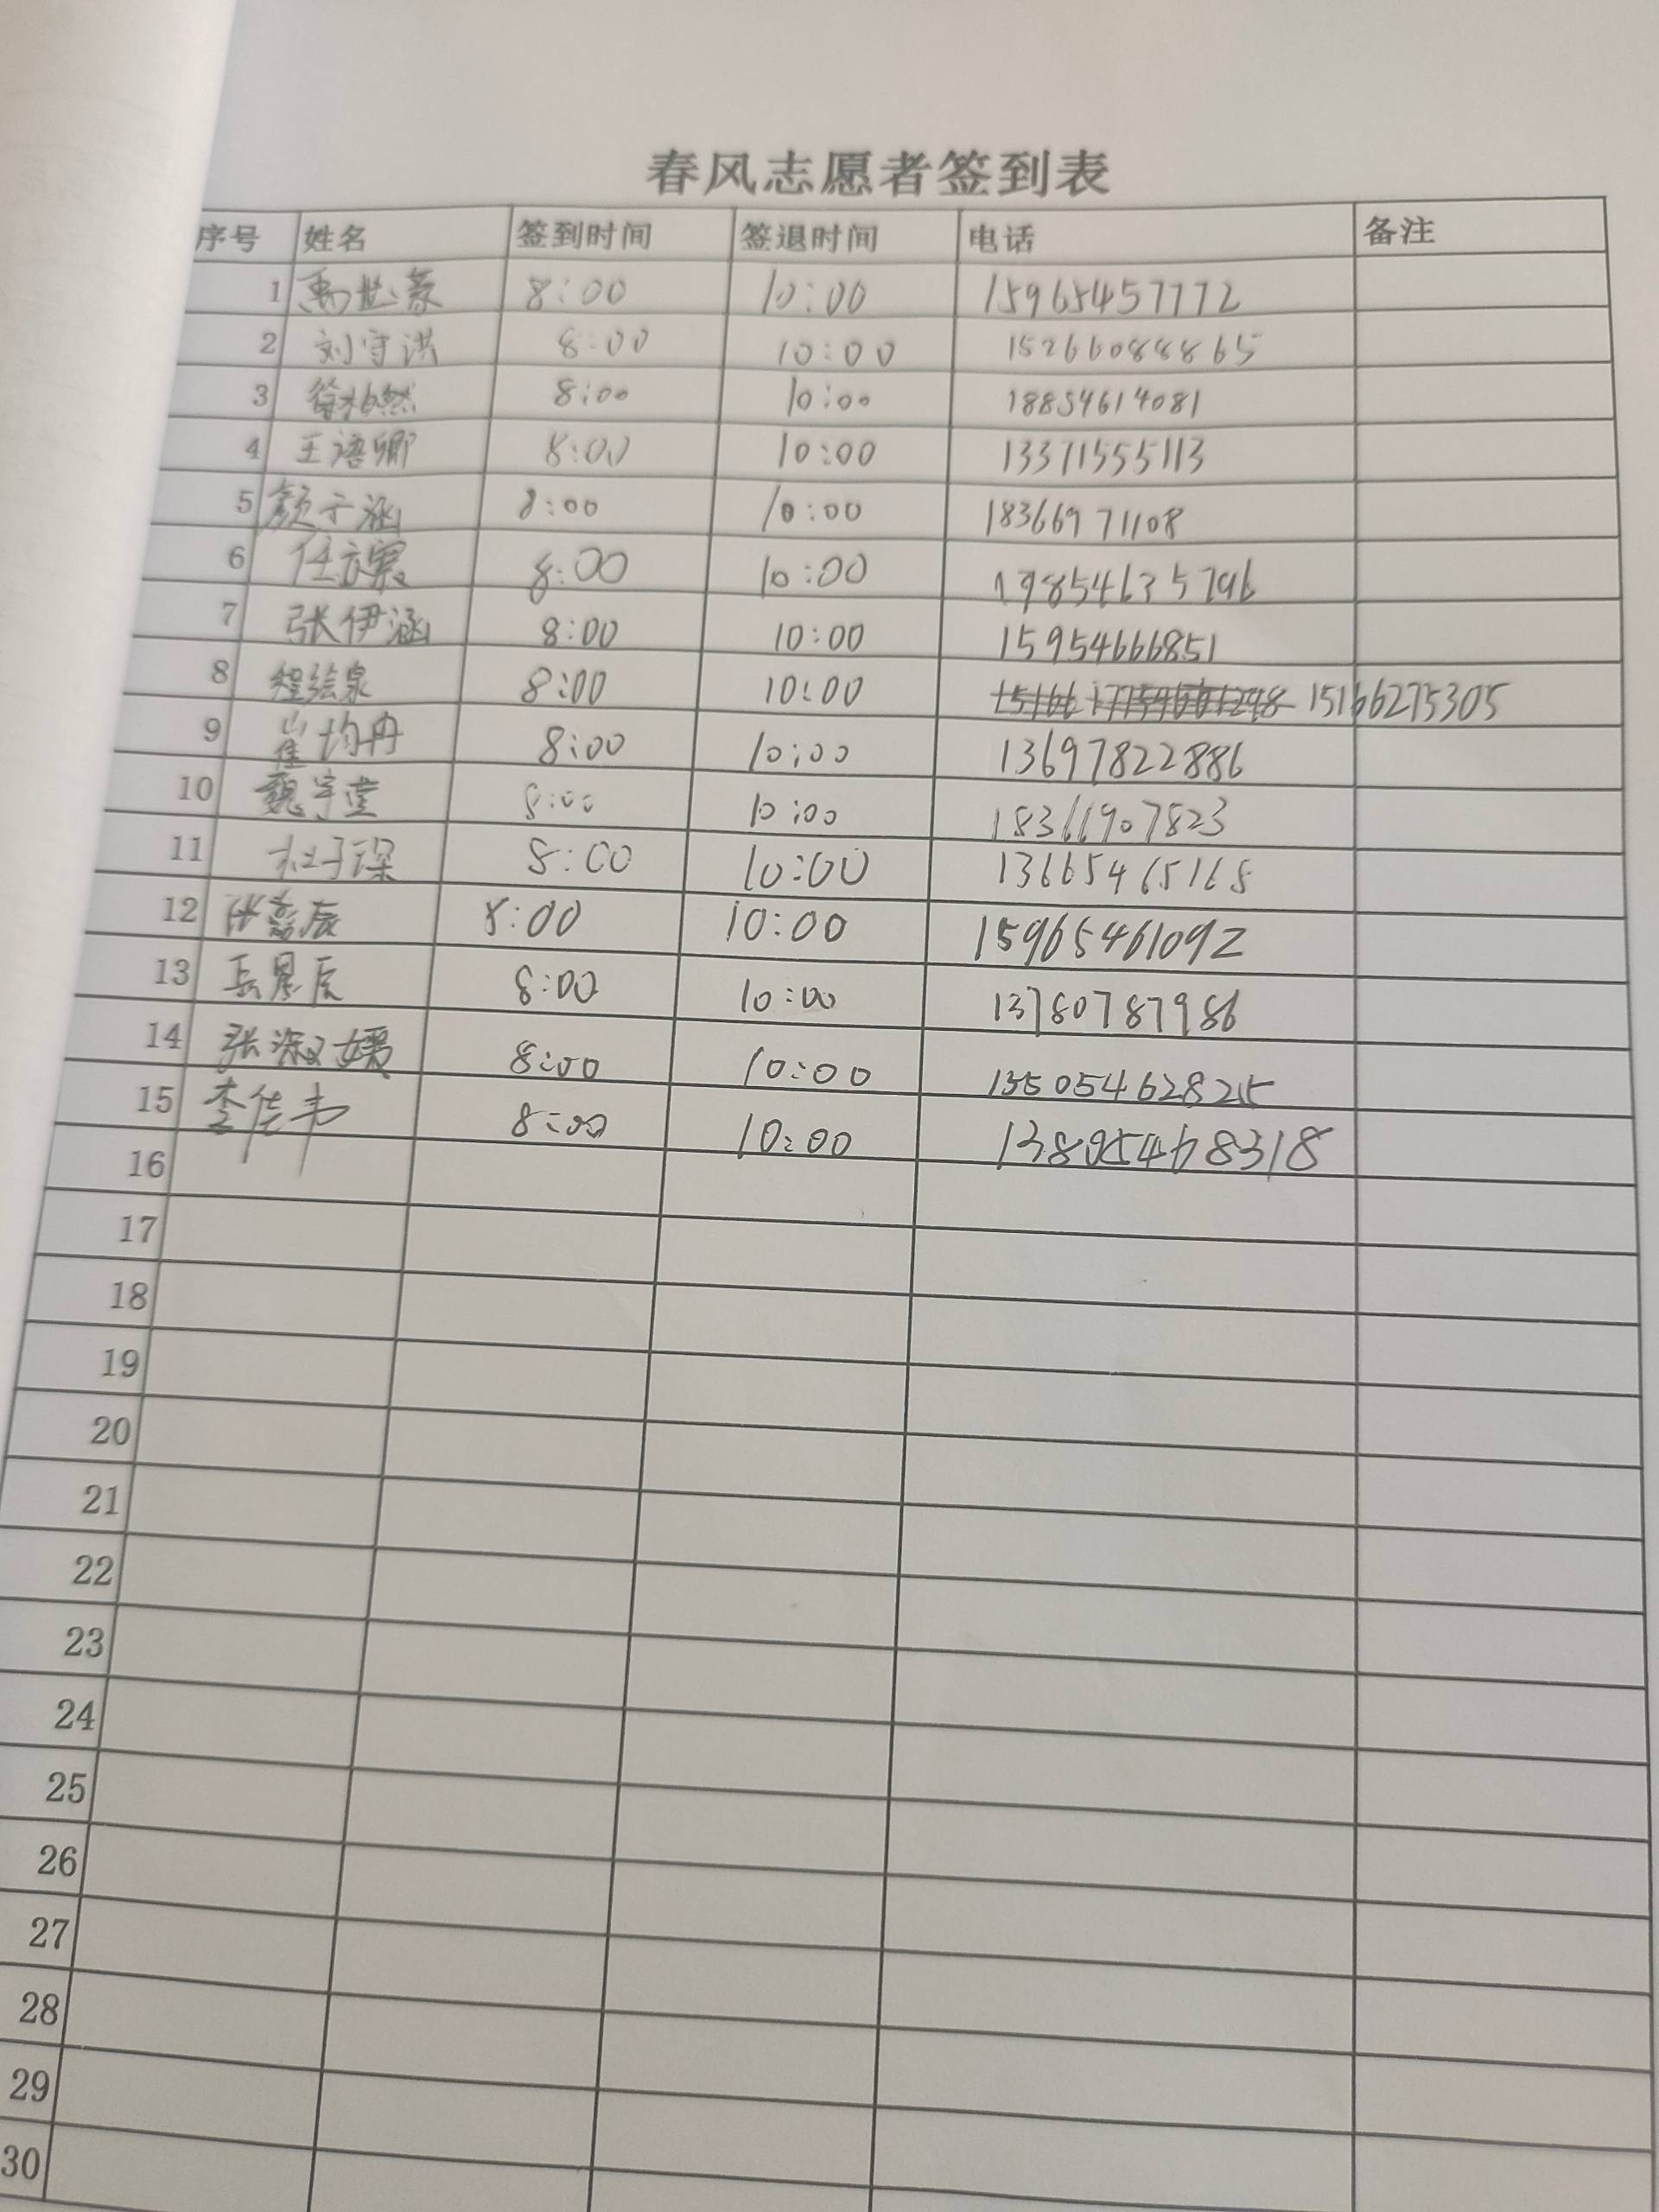 春风志愿者签到表
序号 姓名 签到时间 签退时间 电话 备注
1 禹世豪 8:00 10:00 15965457772
2 刘守洪 8:00 10:00 15266088865
3 柏然 8:00 10:00 18854614081
4 王语卿 8:00 10:00 13371555113
5 颜子涵 8:00 10:00 18366971108
6 任 8:00 10:00
7 张伊涵 8:00 10:00 15954666851
8 程绘泉 8:00 10:00 15166275305
9 崔均冉 8:00 10:00 13697822886
10 魏宇堂 8:00 10:00
11 杜子琛 8:00 10:00 13665465165
12 张嘉辰 8:00 10:00 15965461092
13 岳晨辰 8:00 10:00 13780787986
14 张淑媛 8:00 10:00
15 李佳韦 8:00 10:00 13805468318
16
17
18
19
20
21
22
23
24
25
26
27
28
29
30